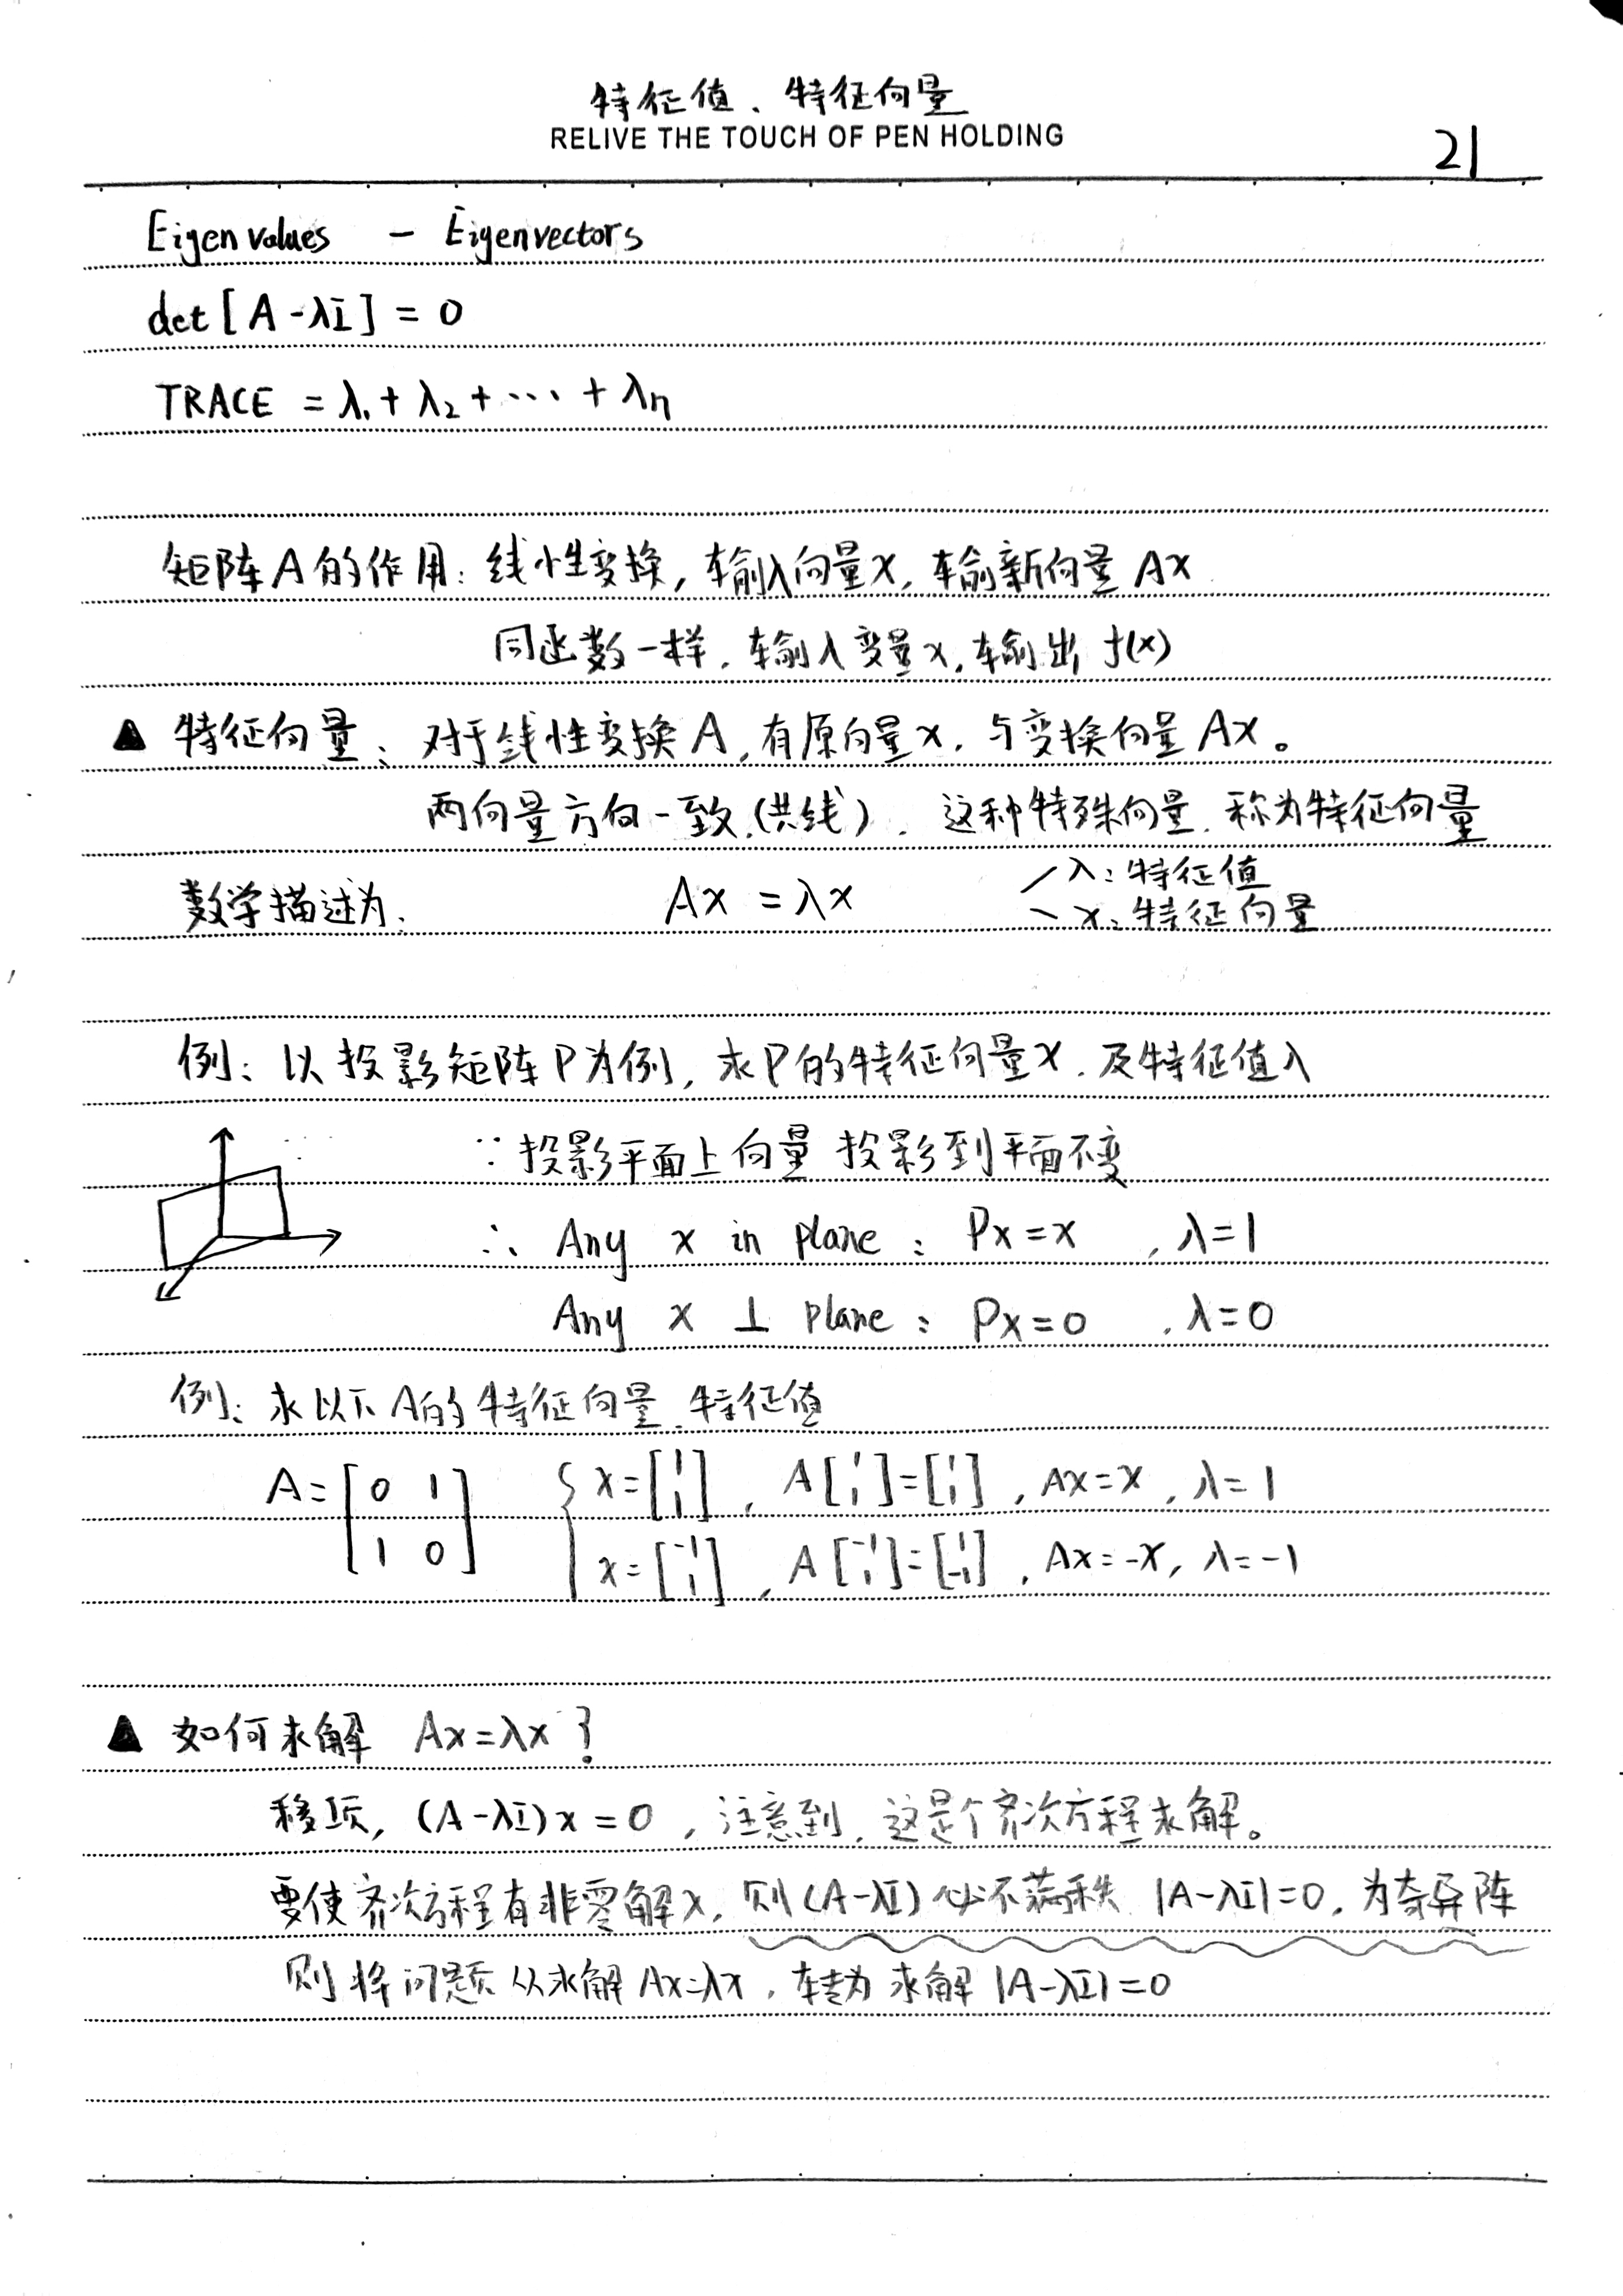 特征值、特征向量
RELIVE THE TOUCH OF PEN HOLDING
21
Eigenvalues - Eigenvectors
det[A-λI]=0
TRACE = λ₁+λ₂+⋯+λn
矩阵A的作用:线性变换,输入向量x,输新向量Ax
同函数一样,输入变量x,输出f(x)
▲ 特征向量、对于线性变换A,有原向量x,与变换向量Ax。
两向量方向一致(共线),这种特殊向量,称为特征向量
数学描述为: Ax=λx
λ:特征值
x:特征向量
例:以投影矩阵P为例,求P的特征向量x,及特征值λ
∵投影平面上向量 投影到平面不变
∴ Any x in plane: Px=x , λ=1
Any x ⊥ plane: Px=0 , λ=0
例:求以下A的特征向量、特征值
A=[0 1; 1 0] { x=[1; 1], A[1; 1]=[1; 1], Ax=x, λ=1
x=[-1; 1], A[-1; 1]=[1; -1], Ax=-x, λ=-1
▲ 如何求解 Ax=λx ?
移项,(A-λI)x=0,注意到,这是个齐次方程求解。
要使齐次方程有非零解x,则(A-λI)必不满秩 |A-λI|=0,为奇异阵
则将问题从求解Ax=λx,转为求解|A-λI|=0